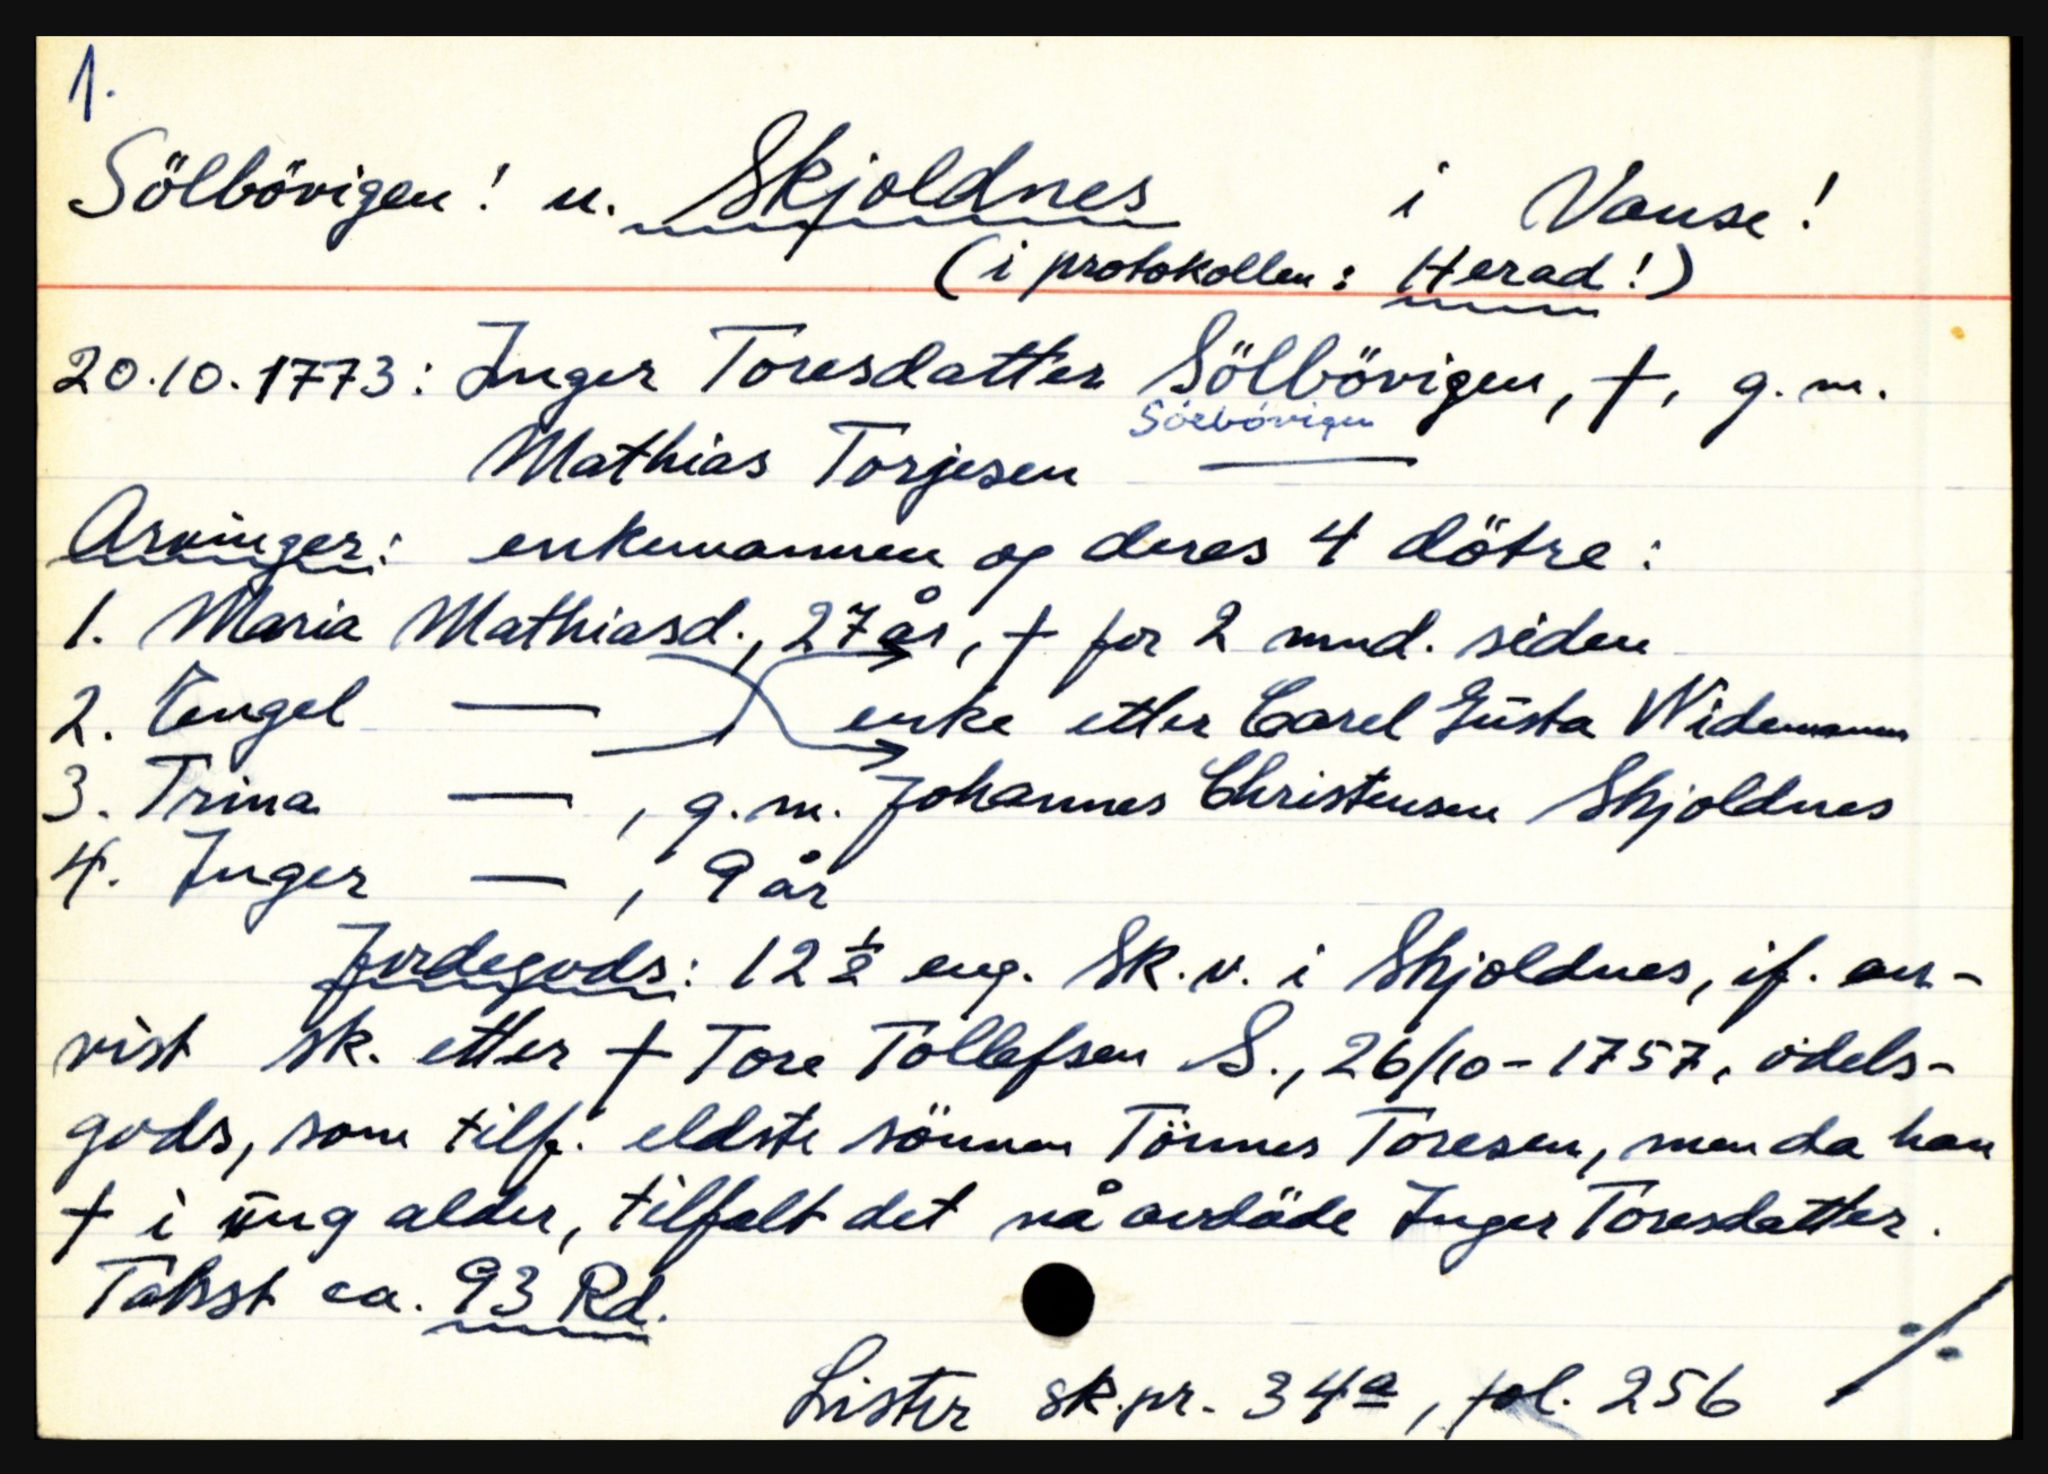 1.
Sölbövigen! u. Skjoldnes i Vanse!
(i protokollen: Herad!)
20.10.1773: Inger Toresdatter Sölbövigen, †, g. m.
Sörbövigen
Mathias Torjesen —
Arvinger: enkemannen og deres 4 dötre:
1. Maria Mathiasd., 27 år, † for 2 mnd. siden
2. Engel — enke etter Carel Gūsta Widemann
3. Trina — , g. m. Johannes Christensen Skjoldnes
4. Inger — , 9 år
Jordegods: 12 ½ eng. Sk. v. i Skjoldnes, if. an-
vist sk. etter † Tore Tollefsen S., 26/10-1757, odels-
gods, som tilf. eldste sönnen Tönnes Toresen, men da han
† i ūng alder, tilfalt det nå avdöde Inger Toresdatter.
Takst ca. 93 Rd.
Lister sk.pr. 34a, fol. 256 ./.